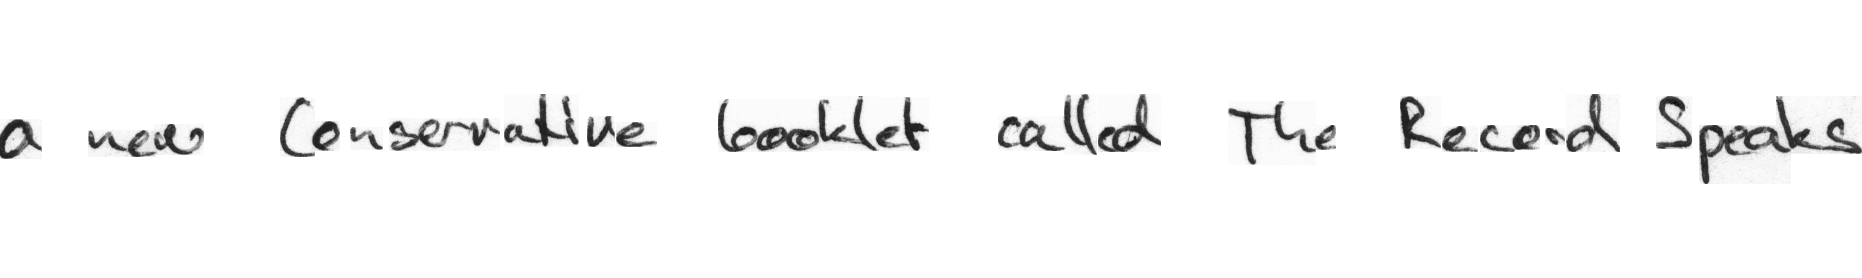 a new Conservative booklet called The Record Speaks